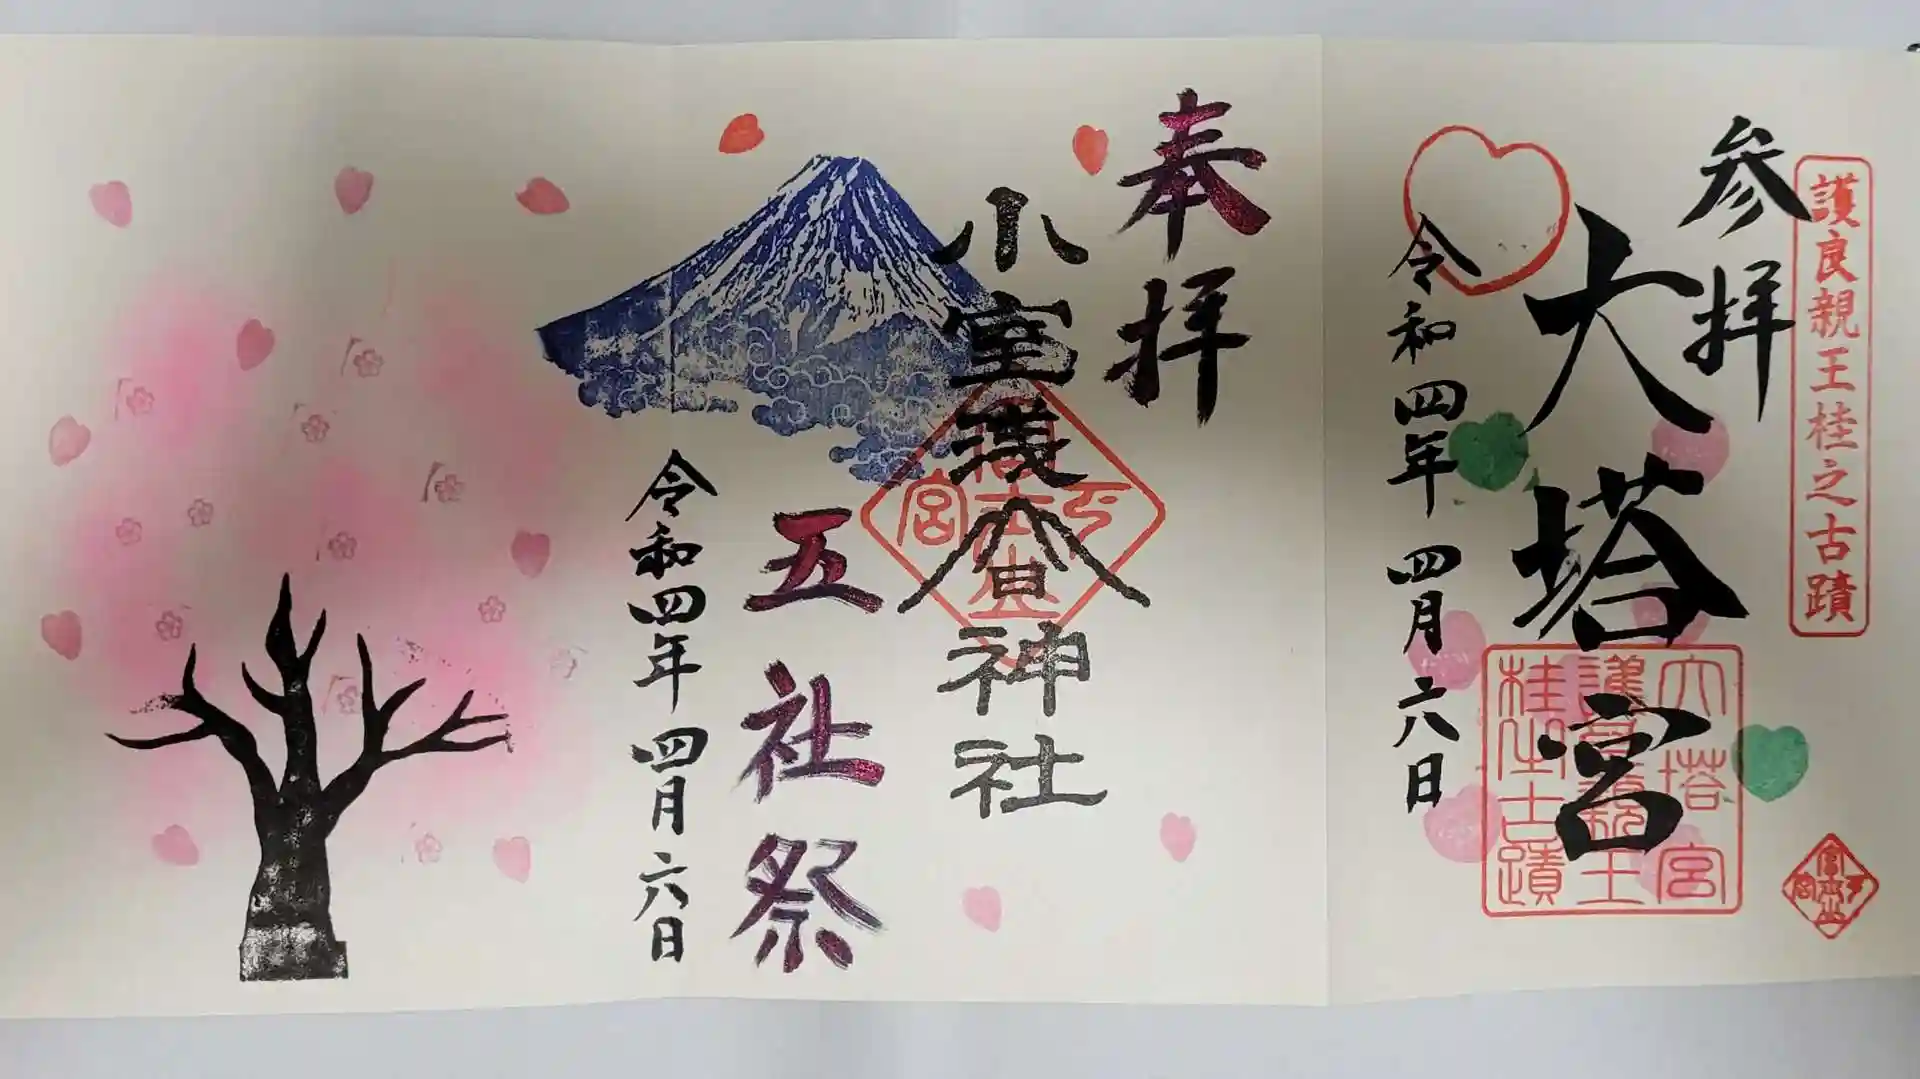 護良親王桂之古蹟
参拝
大塔宮
令和四年四月六日
大塔宮
護良親王
桂之古蹟
奉拝
小室浅間神社
五社祭
令和四年四月六日